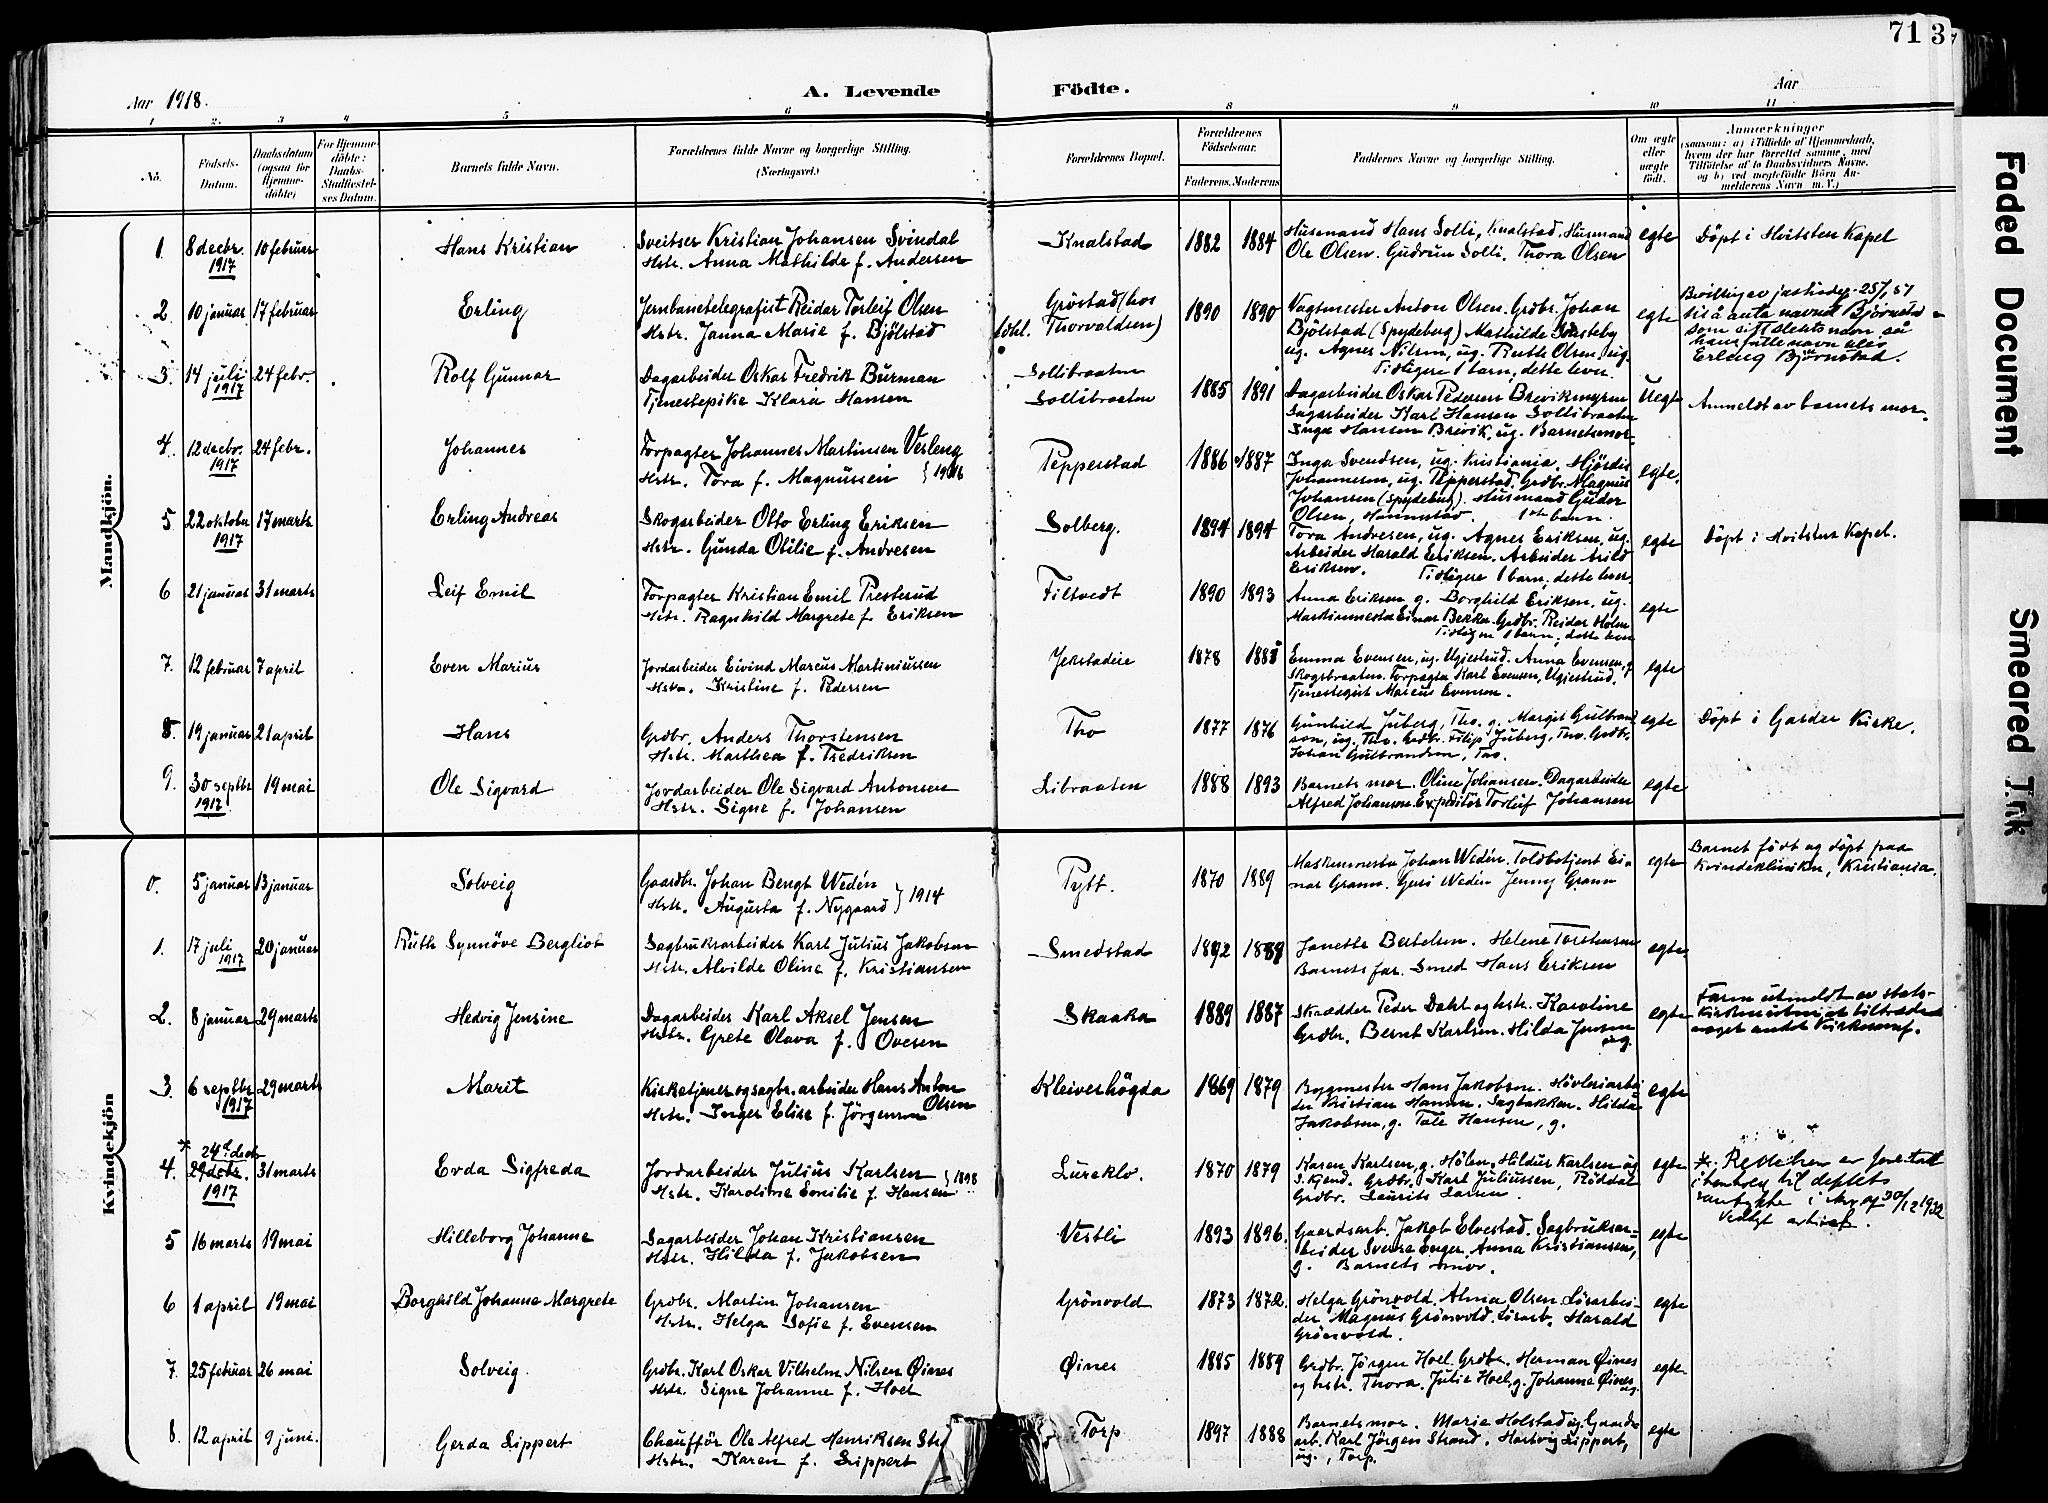 71 3
Aar 1918.
A. Levende Födte.
Aar
1 2. 3 4 5 6 8 9 10 11
No. Födsels-Datum. Daabsdatum (ogsaa for Hjemmedöbte) For Hjemmedöbte: Daabs-Stadfæstelses Datum. Barnets fulde Navn. Forældrenes fulde Navne og borgerlige Stilling. (Næringsvei.) Forældrenes Bopæl. Forældrenes Födselsaar. Faderens. Moderens Faddernes Navne og borgerlige Stilling. Om ægte eller uægte födt. Anmærkninger (saasom: a) i Tilfælde af Hjemmedaab, hvem der har forrettet samme, med Tilföielse af to Daabsvidners Navne, og b) ved uægtefödte Börn Anmelderens Navn m. V.)
Mandkjön.
1. 8 decbr. 1917 10 februar Hans Kristian Sveitser Kristian Johansen Svindal Knalstad 1882 1884 Husmand Hans Solli, Knalstad. Husmand egte Döpt i Hvitsten Kapel
Hstr. Anna Mathilde f. Andersen Ole Olsen. Gudrun Solli. Thora Olsen
2 10 januar 17 februar Erling Jernbanetelegrafist Reidar Torleif Olsen Gröstad (hos Thorvaldsen) 1890 1890 Vagtmester Anton Olsen. Grdbr. Johan egte
Hstr. Janna Marie f. Bjölstad Bjölstad (Spydeberg) Mathilde
ug. Agnes Nilsen, ug. Ruth Olsen, ug. som sitt slektsnavn så
Tidligere 1 barn, dette lever. Erling Bjørnstad.
3. 14 juli 1917 24 febr. Rolf Gunnar Dagarbeider Oskar Fredrik Burman Sollibraaten
Tjenestepike Klara Hansen Sollibraaten 1885 1891 Dagarbeider Oskar Pedersen Brevikmyren Uegte Anmeldt av barnets mor.
Sagarbeider Karl Hansen Sollibraaten
Inga Hansen Brevik, ug. Barnets mor.
4. 12 decbr. 1917 24 febr. Johannes Forpagter Johannes Martinsen Vesleng Pepperstad 1886 1887 Inga Svendsen, ug. Kristiania. Hjördis egte.
Hstr. Tora f. Magnussen } 1916 Johannesen, ug. Pepperstad. Grdbr. Magnus
Johansen (Spydeberg). Husmand Gulder
Olsen, Hannestad. 1ste barn.
5 22 oktober 1917 17 marts Erling Andreas Skogarbeider Otto Erling Eriksen Solberg. 1894 1894 Tora Andresen, ug. Agnes Eriksen, ug. egte Döpt i Hvitsten Kapel.
Hstr. Gunda Otilie f. Andresen Arbeider Harald Eriksen. Arbeider Arild
Eriksen. Tidligere 1 barn, dette lever
6 21 januar 31 marts Leif Emil Forpagter Kristian Emil Presterud Filtvedt 1890 1893 Anna Eriksen g. Borghild Eriksen, ug. egte
Hstr. Ragnhild Margrete f. Eriksen Maskinmester Einar Bekker. Grdbr. Reidar Holm
Tidligere 1 barn, dette lever
7. 12 februar 7 april Even Marius Jordarbeider Eivind Marcus Martiniussen Jekstadeie 1878 1881 Emma Evensen, ug. Ugjestrud. Anna Evensen, g egte
Hstr. Kristine f. Pedersen Skogsbraaten. Forpagter Karl Evensen, Ugjestrud.
Tjenestegut Marcus Evensen.
8. 19 januar 21 april Hans Grdbr. Anders Thorstensen Tho 1877 1876 Gunhild Juberg, Tho. g. Margit Gulbrand egte Döpt i Garder Kirke.
Hstr. Marthea f. Fredriksen son, ug. Tho. Grdbr. Filip Juberg, Tho. Grdbr.
Johan Gulbrandson, Tho.
9. 30 septbr 1917 19 mai Ole Sigvard Jordarbeider Ole Sigvard Antonsen Libraaten 1888 1893 Barnets mor. Oline Johansen. Dagarbeider egte
Hstr. Signe f. Johansen Alfred Johansen. Expeditör Torleif Johansen
Kvindekjön
0. 5 januar 13 januar Solveig Gaardbr. Johan Bengt Wedén Pytt. 1870 1889 Maskinmester Johan Wedén. Toldbetjent Ei- egte Barnet födt og döpt paa
Hstr. Augusta f. Nygaard } 1914 nar Grann. Gusi Wedén Jenny Grann Kvindeklinikken, Kristiania.
1. 17 juli 1917 20 januar Ruth Synnöve Bergliot Sagbruksarbeider Karl Julius Jakobsen Smedstad 1892 1889 Janette Bertelsen. Helene Torstensen egte
Hstr. Alvilde Oline f. Kristiansen Barnets far. Smed Hans Eriksen
2. 8 januar 29 marts Hedvig Jensine Dagarbeider Karl Aksel Jensen Skaaka 1889 1887 Skrædder Peder Dahl og hstr. Karoline egte Faren utmeldt av stats-
Hstr. Grete Olava f. Ovesen Grdbr. Bernt Karlsen. Hilda Jensen ug. kirken uten at tiltræde noget andet kirkesamf.
3. 6 septbr 1917 29 marts Marit Kirketjener og sagbr. arbeider Hans Anton Olsen Kleiverhögda 1869 1879 Bygmester Hans Jakobsen. Hövleriarbei egte
Hstr. Inger Elise f. Jörgensen der Kristian Hansen. Sagbakken. Hilda
Jakobsen, g. Tale Hansen, g.
4. * 24 decbr 29 decbr. 1917 31 marts Evda Sigfreda Jordarbeider Julius Karlsen Lureklv. 1870 1879 Karen Karlsen, g. Hölen. Hildur Karlsen ug egte * Rettelsen er foretatt
Hstr. Karoline Emilie f. Hansen } 1898 S. Kjend. Grdbr. Karl Juliussen, Röddal i henhold til deptets
Grdbr. Laurits Larsen. samtykke i skr. af 30/12 1932
Vedlagt arkivet.
5 16 marts 19 mai Hilleborg Johanne Sagarbeider Johan Kristiansen Vestli 1893 1896 Gaardsarb. Jakob Elvestad. Sagbruksar- egte
Hstr. Hilda f. Jakobsen beider Sverre Enger. Anna Kristiansen,
g. Barnets mor.
6 1 april 19 mai Borghild Johanne Margrete Grdbr. Martin Johansen Grönvold 1873 1872. Helga Grönvold. Alma Olsen. Lörarbei- egte
Hstr. Helga Sofie f. Evensen der Magnus Grönvold. Lörarb. Harald
Grönvold.
7. 25 februar 26 mai Solveig Grdbr. Karl Oskar Vilhelm Nilsen Øines Øines 1885 1889 Grdbr. Jörgen Hoel. Grdbr. Herman Øines egte
Hstr. Signe Johanne f. Hoel og hstr. Thora. Julie Hoel, g. Johanne Øines ug.
8. 12 april 9 juni. Gerda Lippert Chauffför Ole Alfred Henriksen Torp 1897 1888 Barnets mor. Marie Holstad ug. Gaards egte
Hstr. Karen f. Lippert arb. Karl Jörgen Strand. Hartvig Lippert,
ug., Torp.
Faded Document
Smeared Ink